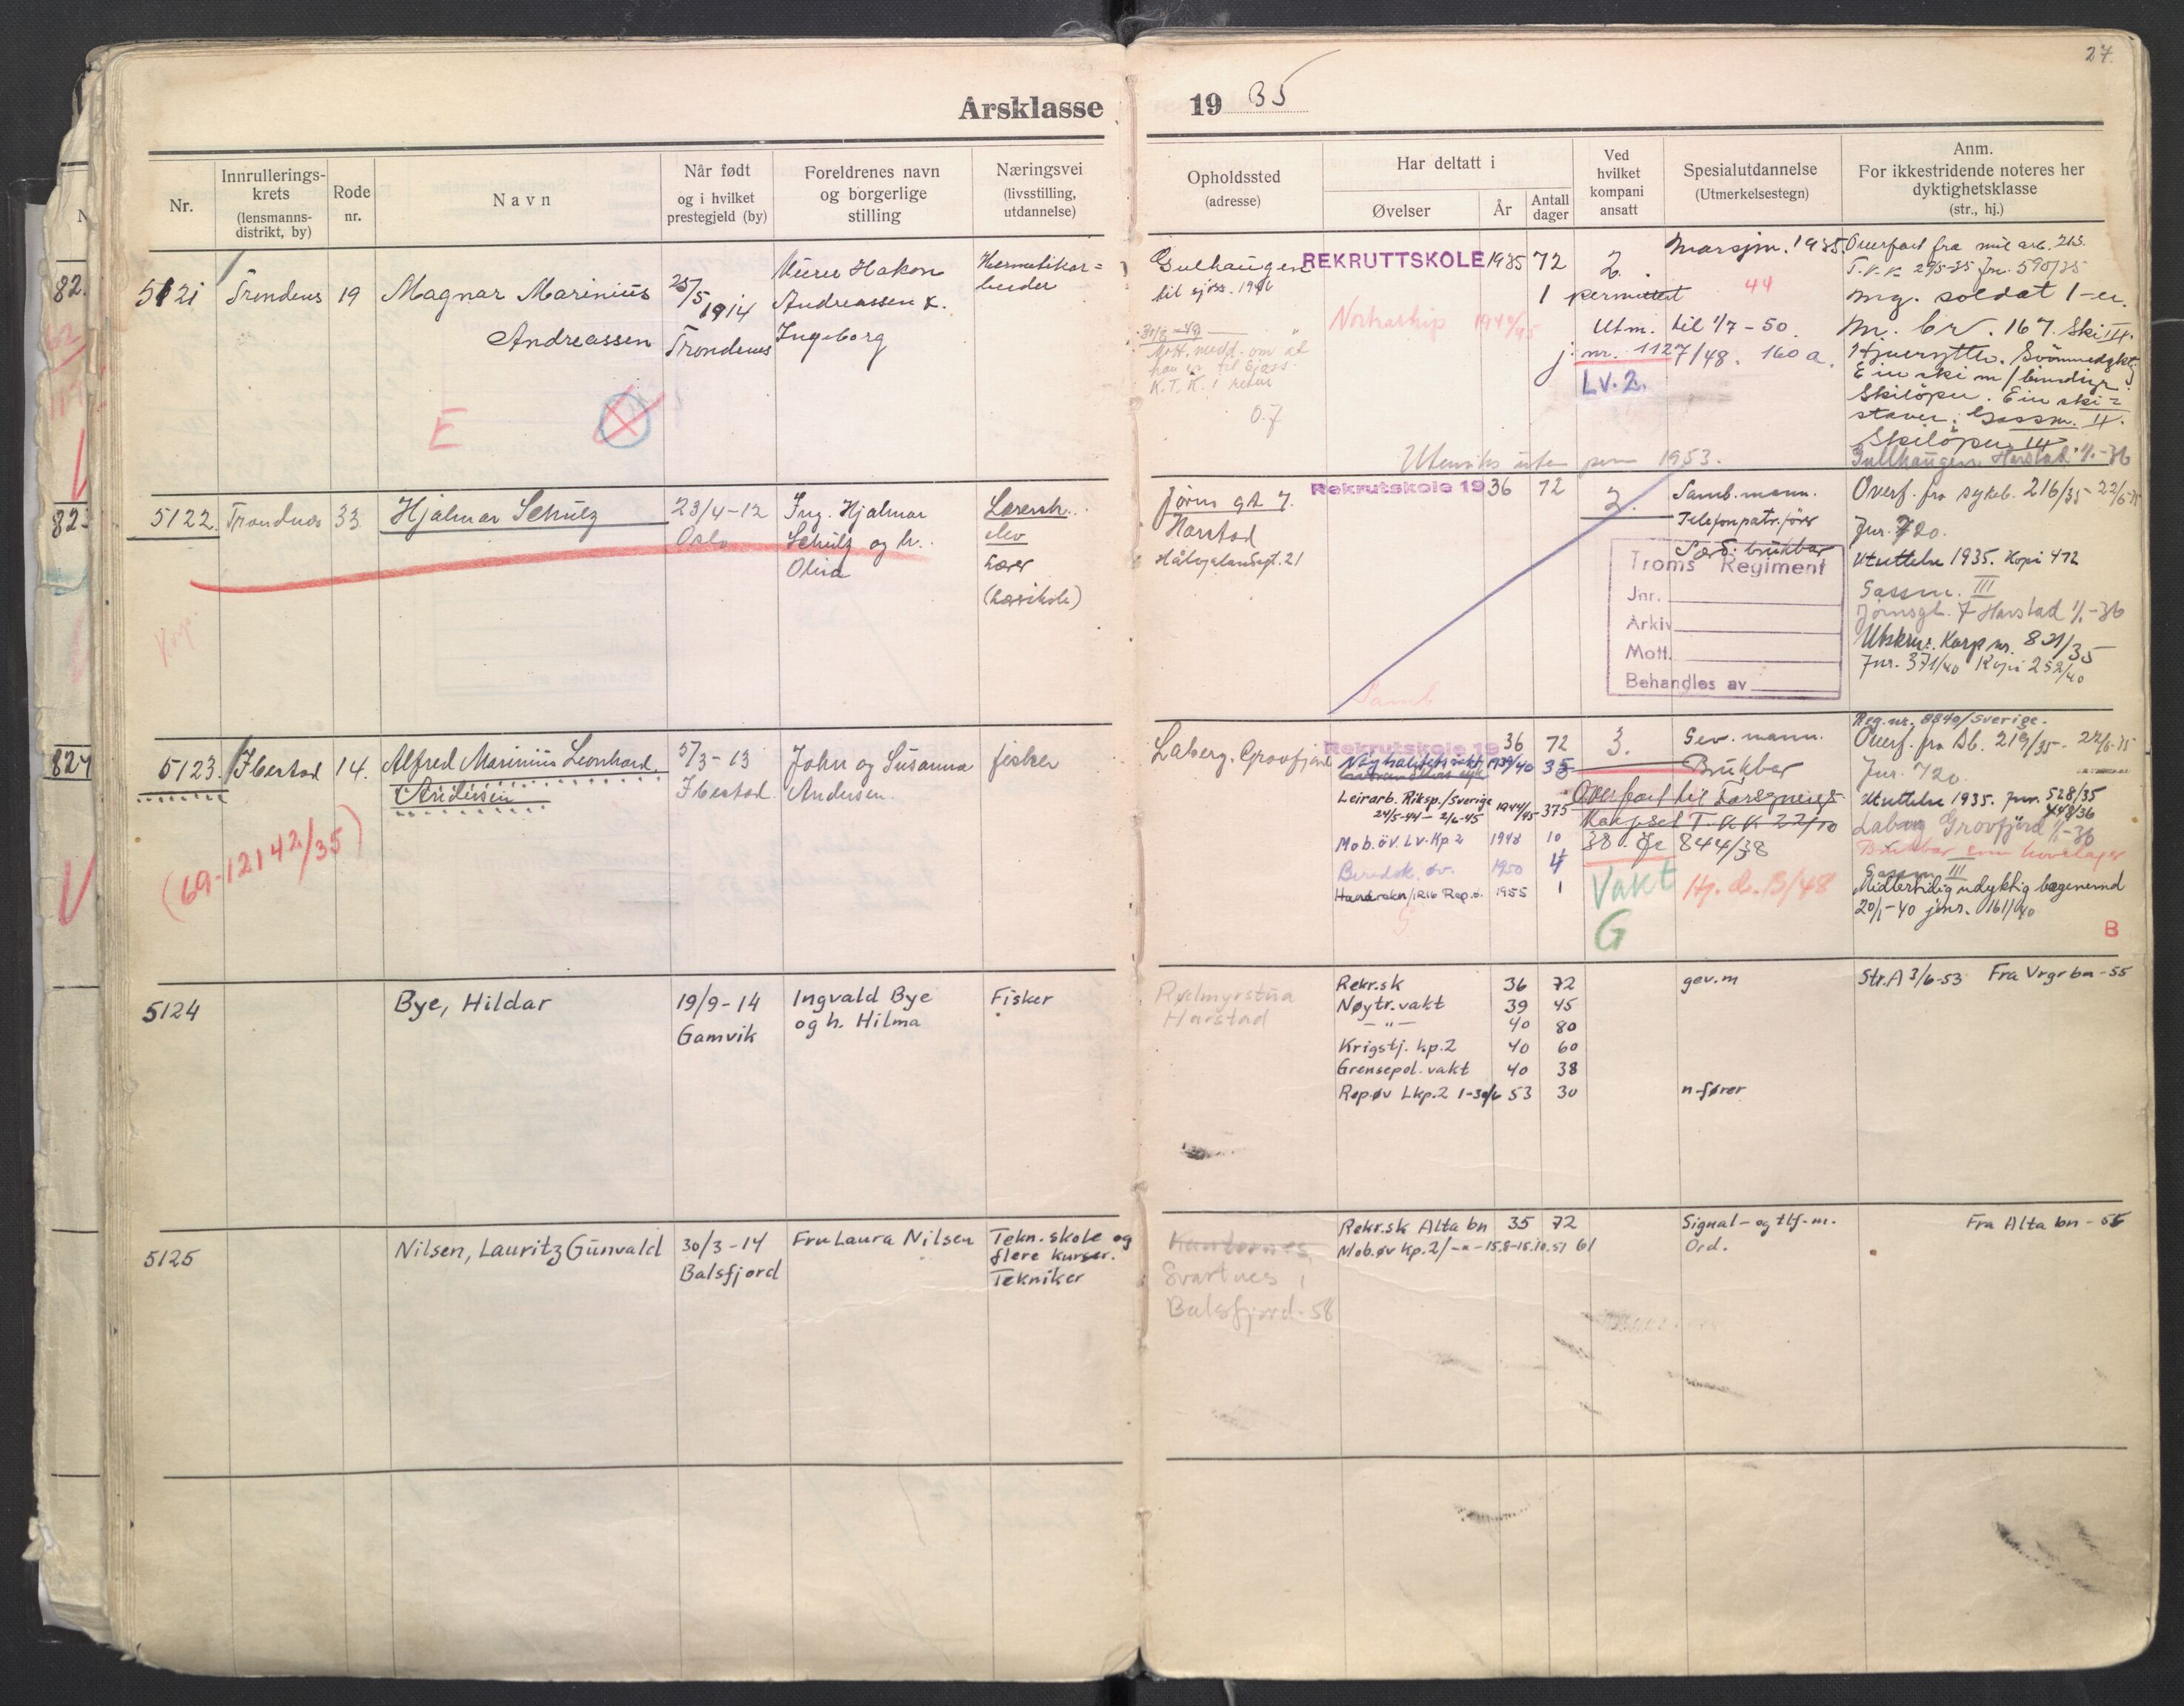 27.
Årsklasse 19 35
Nr.
Innrullerings-
krets
(lensmanns-
distrikt, by)
Rode
nr.
Navn
Når født
og i hvilket
prestegjeld (by)
Foreldrenes navn
og borgerlige
stilling
Næringsvei
(livsstilling,
utdannelse)
Opholdssted
(adresse)
Har deltatt i
Øvelser
År
Antall
dager
Ved
hvilket
kompani
ansatt
Spesialutdannelse
(Utmerkelsestegn)
Anm.
For ikkestridende noteres her
dyktighetsklasse
(str., hj.)
5121
Trondenes
19
Magnar Marinius
Andreassen
E
25/5 1914
Trondenes
Murer Hakon
Andreassen &
Ingeborg
Hermetikar=
beider
Gulhaugen
til sjøss. 1946
K.T.K. i retur
0.7
REKRUTTSKOLE 1935 72
1
Nortraship 1940/45
Utenriks uten perm 1953.
2.
permittert
Utm. til 1/7-50.
j. nr. 1127/48. 160 a.
LV. 2.
Marsjm. 1935.
44
Overført fra mil. arb. 213.
T.K.K. 29/5-35 Jnr. 590/35
mg. soldat 1-er.
Nr. br. 167. Ski III.
Svömmedykt.
Ein ski m/bindinger.
Skilöper. Ein ski=
staver. Gassm. II.
Skilöper III
Gullhaugen Harstad 1/1-36
5122.
Trondnes
33
Hjalmar Schulz
23/4-12
Oslo
Ing. Hjalmar
Schulz og h.
Oliva
Lærersk.
elev
Lærer
(Lærerskole)
Korp.
Jörns gt 7.
Harstad
Hålogalandsgt. 21
Rekrutskole 1936 72
Samb
2.
Samb.mann.
Telefonpatr.förer
Særd. brukbar
Troms Regiment
Jnr.
Arkiv
Mott.
Behandles av
Overf. fra sykeb. 216/35 - 22/6-35
Jnr. 720.
Utsettelse 1935. Kopi 472
Gassm. III
Jörnsgt. 7 Harstad 1/1-36
Utskr. Korp nr. 821/35
Jnr. 371/40 Kopi 252/40
5123.
Ibestad
14.
Alfred Marinius Leonhard
Andersen
(69-12142/35)
5/3-13
Ibestad
John og Susanna
Andersen.
fisker
Laberg, Grovfjord
Rekrutskole 1936 72
Nøytralitetsvakt 1939/40 35
Leirarb. Riksp./Sverige
24/5-44 - 2/6-45 1944/45 375
Mob.öv. Lv.Kp 2 1948 10
Beredsk. øv. 1950 4
Rep.ø. 1955 1
3.
Overført til Varanger
38. Jr 844/38
Vakt
G
Gev. mann.
Brukbar
Hj. d. B/48
Reg.nr. 8840/Sverige.
Overf. fra Ab. 219/35 - 22/6-35
Jnr. 720.
Utsettelse 1935. Jnr. 528/35
448/36
Laberg Grovfjord 1/1-36
Gassm III
Midlertidig udyktig legenemnd
20/1-40 jnr. 161/40
B
5124
Bye, Hildar
19/9-14
Gamvik
Ingvald Bye
og h. Hilma
Fisker
Harstad
Rekr.sk 36 72
Nøytr.vakt 39 45
-"- 40 80
Krigstj. kp.2 40 60
Grensepol.vakt 40 38
Rep.øv Lkp.2 1-30/6 53 30
gev.m
n-fører
Str.A 3/6-53 Fra Vrgr bn-55
5125
Nilsen, Lauritz Gunvald
30/3-14
Balsfjord
Fru Laura Nilsen
Tekn.skole og
flere kurser.
Tekniker
Svartnes i
Balsfjord-58
Rekr.sk Alta bn 35 72
Mob.øv Kp.2/-"- 15.8-15.10.51 61
Signal- og tlf-m.
Ord.
Fra Alta bn-55